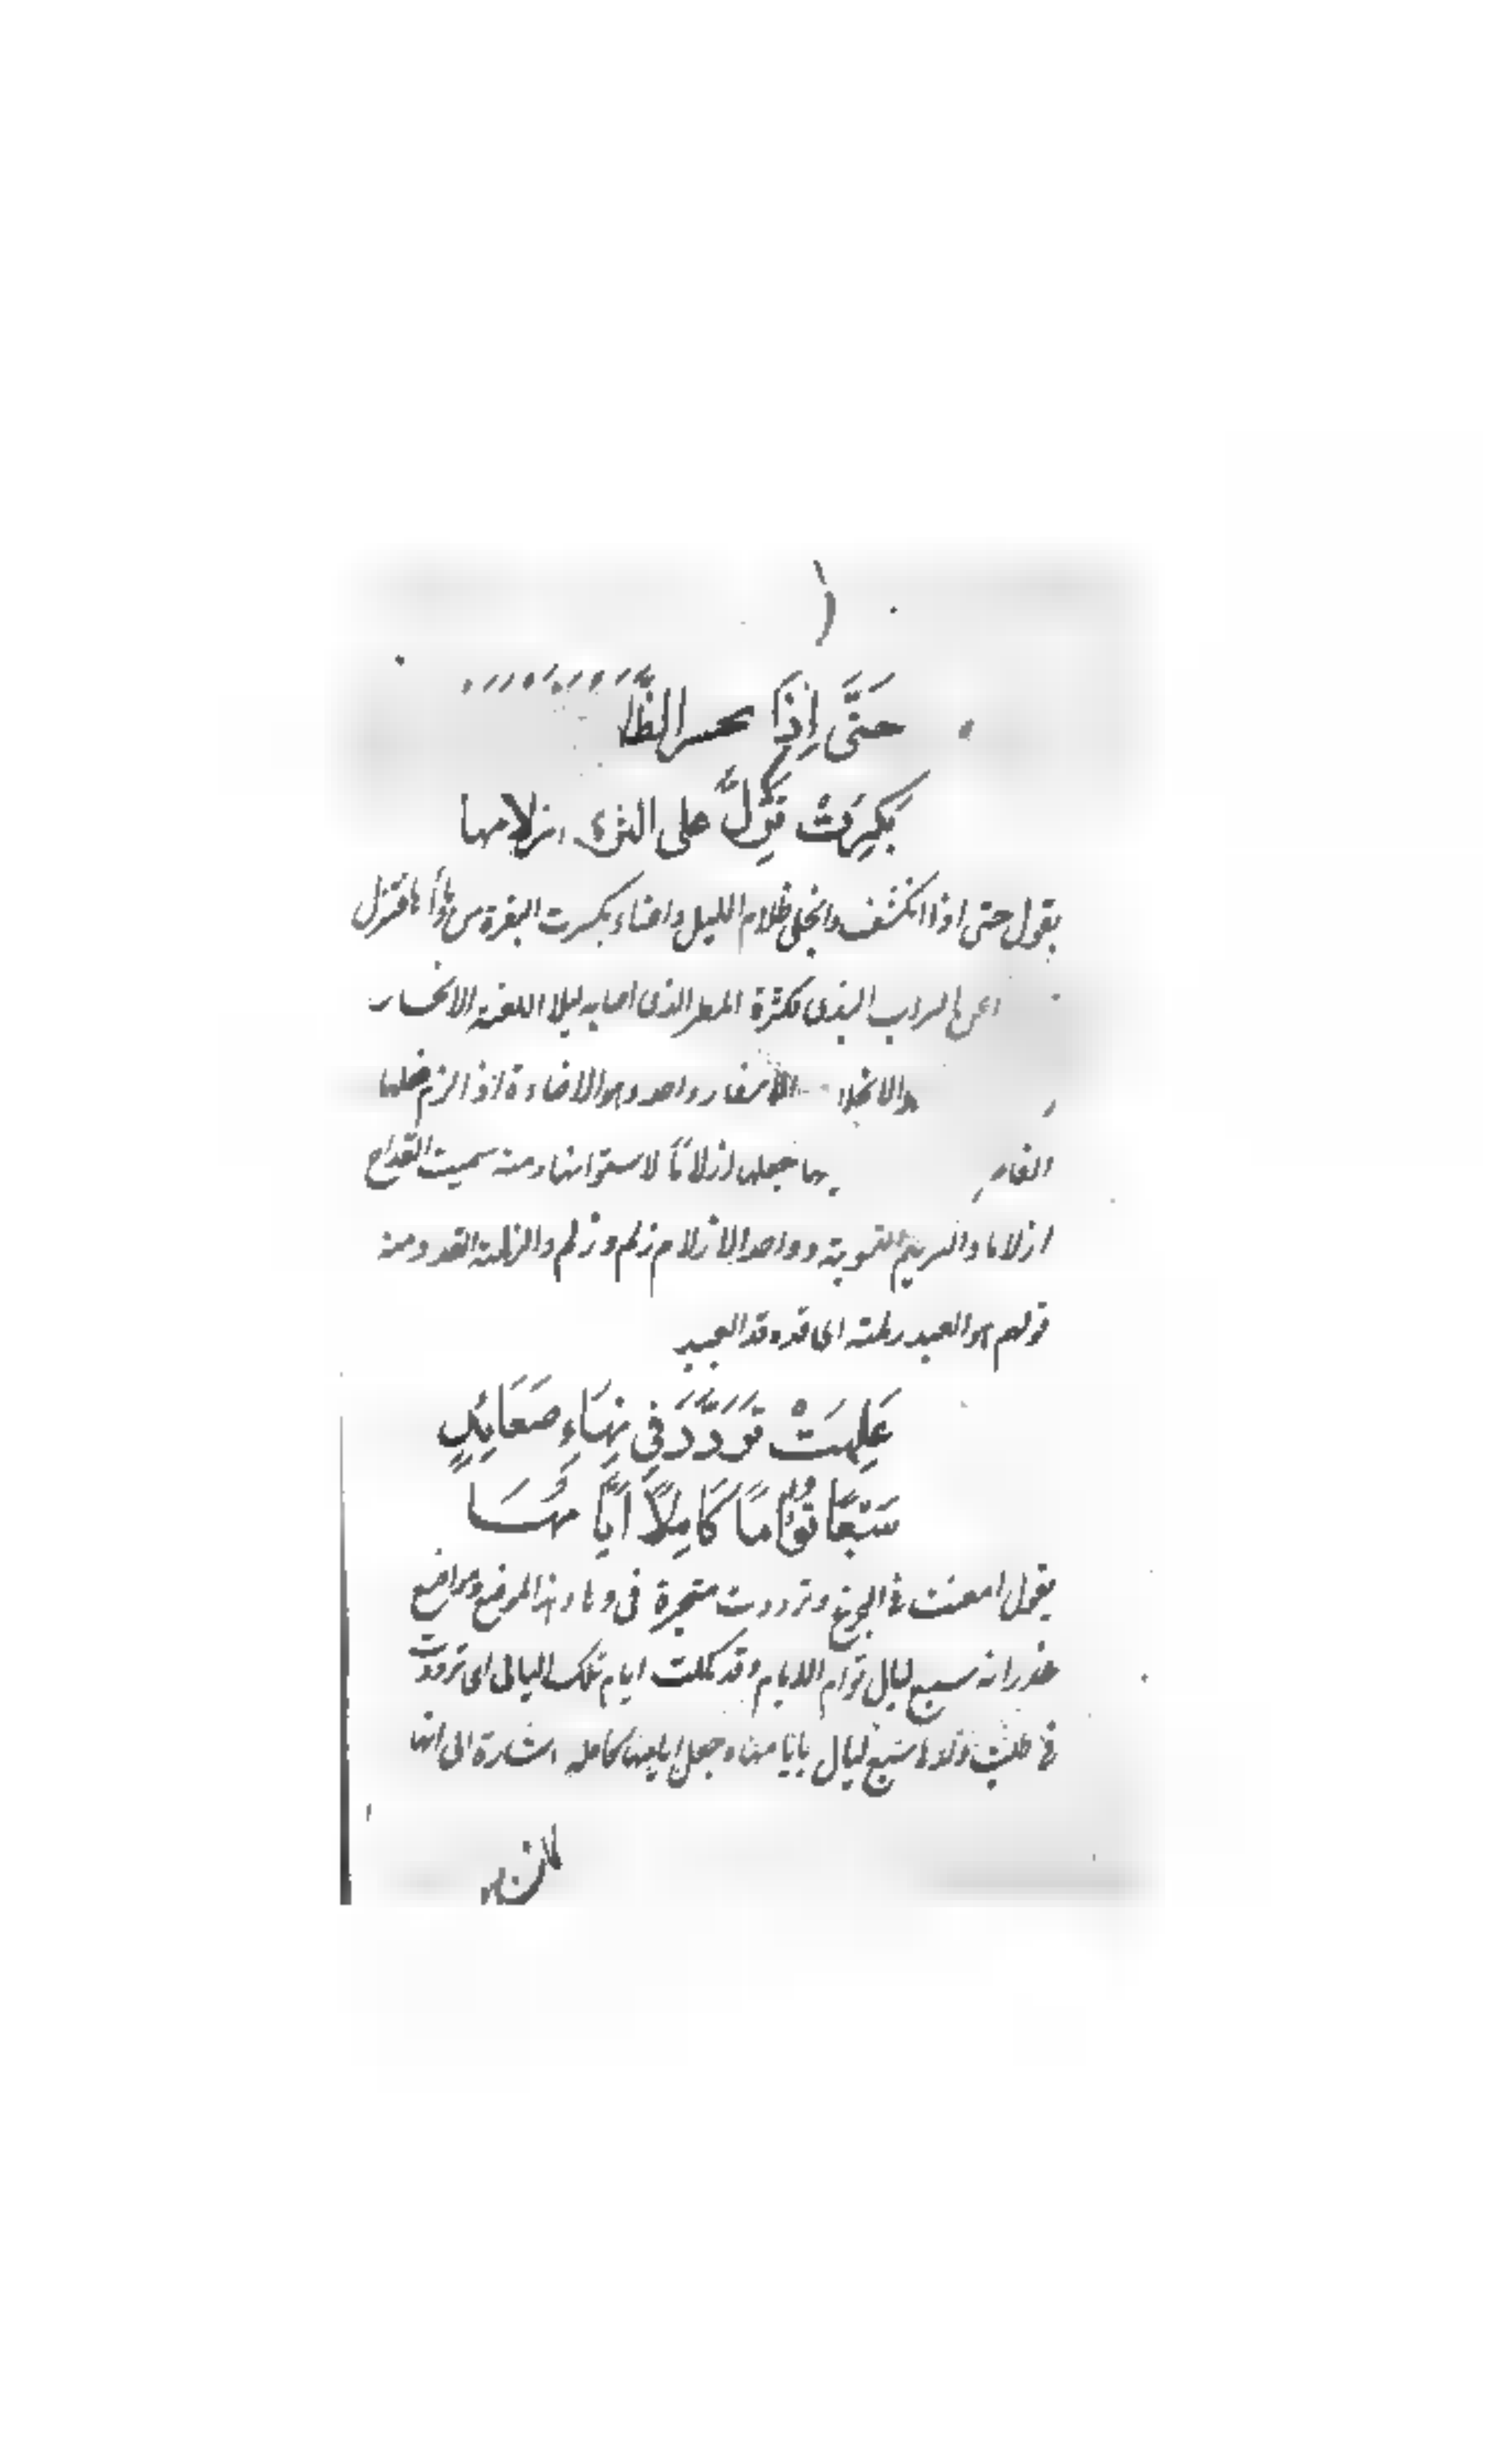 حَتَّى اِذَا حسر الظَّلَا
بَكِرَتْ تَزِلُّ على الثرى ازلامها
يقول حتى اذا انكشف وانجلى ظلام الليل واضاء بكرت البقرة من مأواها فتزل
التراب الندى لكثرة المطر الذى اصابه ليلا الانحسار
والانجلا الاسفار واحد وهو الاضاءة اذا لزم
بها جعلها ازلاما لاستوائها ومنه سميت القداح
ازلاما والتزليم التسوية وواحد الازلام زلم وزلم والزلمة القد ومنه
قولهم هو العبد زلمة اى قده قد العبيد
عَلِهَتْ تَرَدَّدَ فِى نِهَاءِ صَعَائِدٍ
سَبْعًا تُؤَامًا كَامِلاً اَيَّا مُهَسَا
يقول امعنت فى الجزع وترددت متحيرة فى وهاد هذا الموضع ومواضع
غدرانه سبع ليال تؤام للايام وقد كملت ايام تلك الليالى اى ترددت
فى طلب ولدها سبع ليال بايامها وجعل ايامها كاملة اشارة الى انها